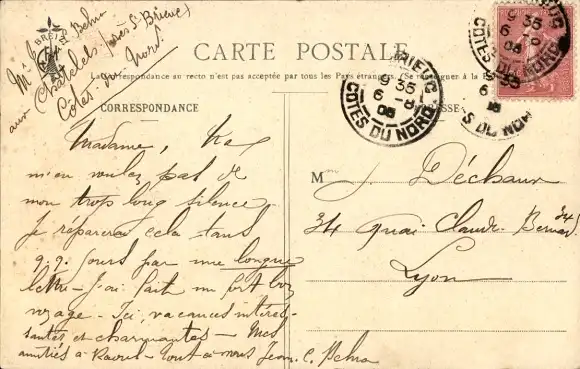 Behra
aux Châtelets (près St Brieuc)
Côtes du Nord
CARTE POSTALE
La Correspondance au recto n'est pas acceptée par tous les Pays étrangers. (Se renseigner à la
CORRESPONDANCE
Madame, Ne
m'en voulez pas de
mon trop long silence.
Je réparerai cela dans
q.q. jours par une longue
lettre – J'ai fait un fort bon
voyage – Ici, vacances intéres-
santes et charmantes – Mes
amitiés à Raoul – tout à vous Jean. C. Behra
M J. Déchaux
34 Quai Claude Bernard 34
Lyon
BRIEUC
9 35
6 -8
06
COTES DU NORD